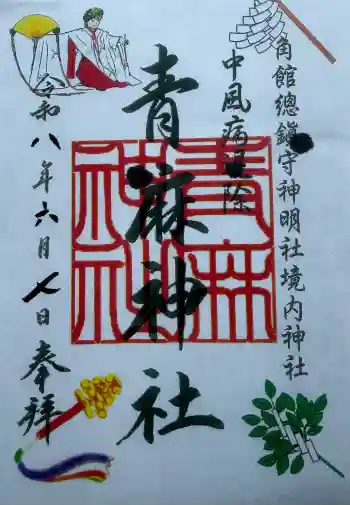 角館總鎮守神明社境内神社
中風病厄除
青麻神社
令和八年六月七日奉拝
青麻神社